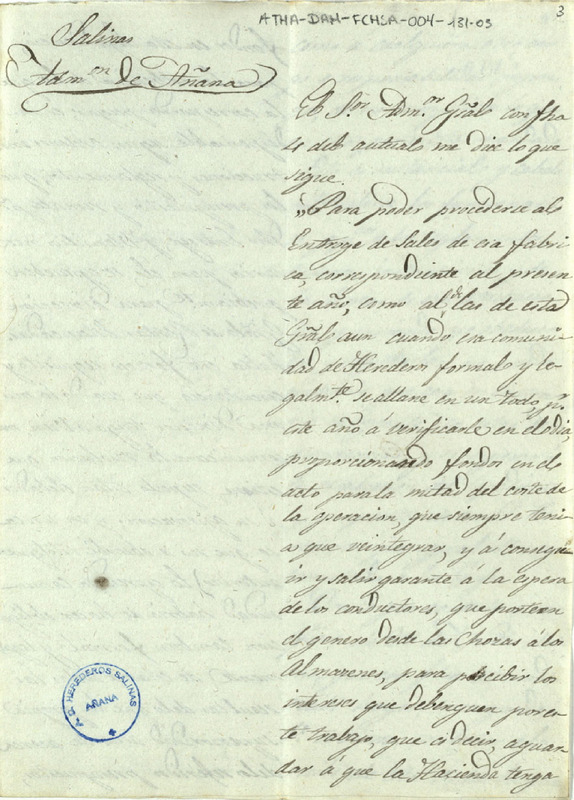 ATHA-DAH-FCHSA-004-131-03
3
Salinas
Adm.on de Añana
El S.or Adm.or Gral con fha
4 del actual me dice lo que
sigue.
"Para poder procederse al
Entroge de Sales de esa fabri
ca, correspondiente al presen
te año, como al de las de esta
Gral aun cuando esa comuni
dad de Herederos formal y le
galm.te se allane en un todo p.r
este año á verificarle en el dia,
proporcionando fondos en el
acto para la mitad del coste de
la operacion, que siempre teni
a que reintegrar, y á consegu
ir y salir garante á la espera
de los conductores, que porteen
el genero desde las Chozas á los
Almacenes, para recibir los
intereses que debenguen por es
te trabajo, que es decir, aguar
dar á que la Hacienda tenga
HEREDEROS SALINAS
AÑANA